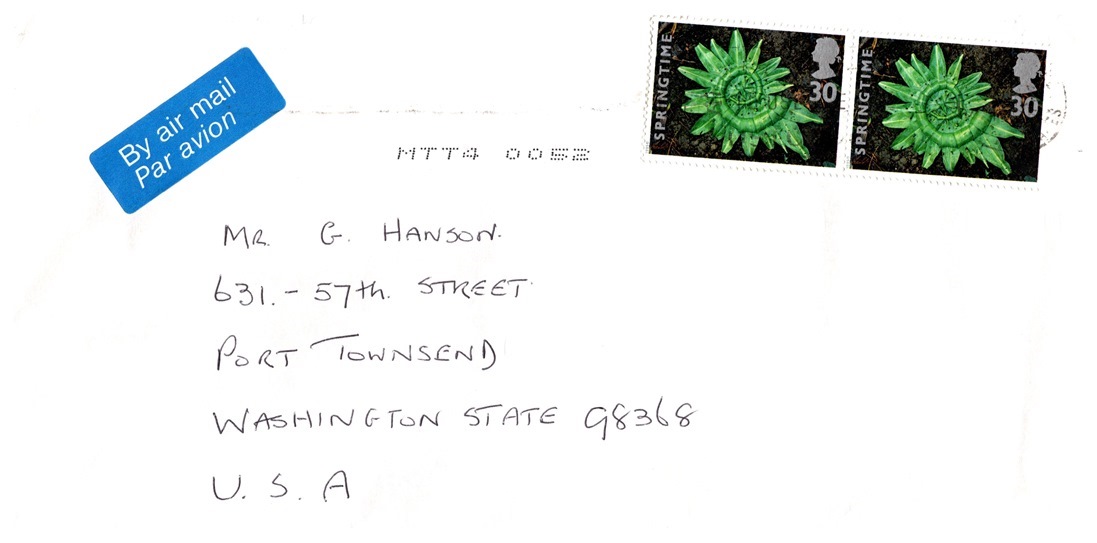 By air mail
Par avion
SPRINGTIME
30
SPRINGTIME
30
MTT4 0052
MR. G. HANSON.
631.-57th. STREET
PORT TOWNSEND
WASHINGTON STATE 98368
U. S. A